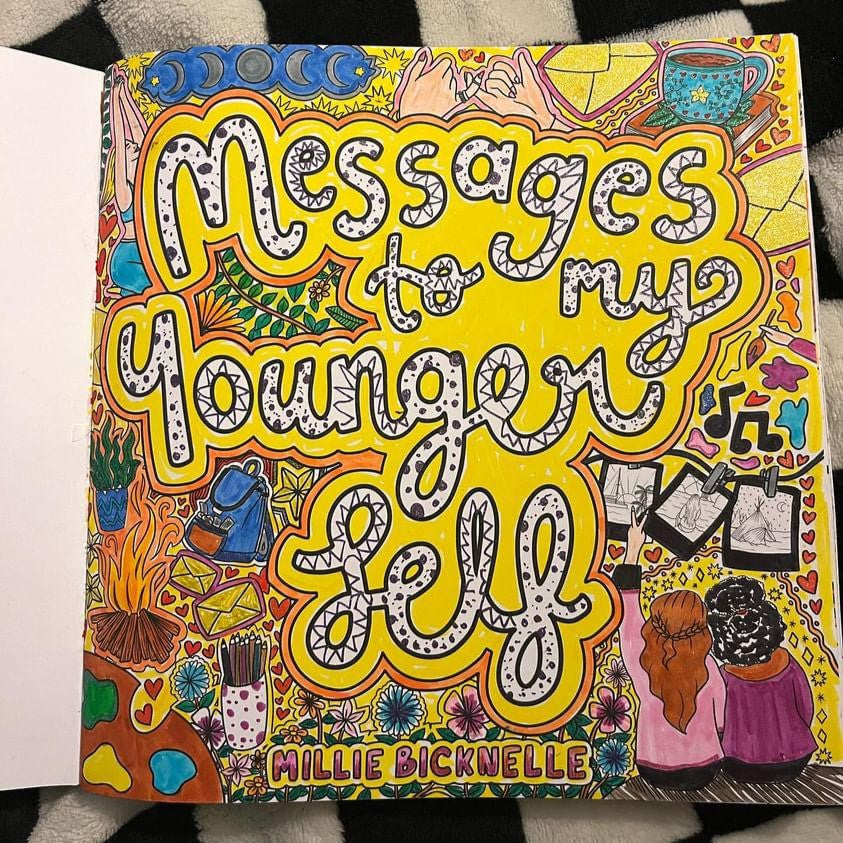 Messages
to my
Younger
Self
MILLIE BICKNELLE